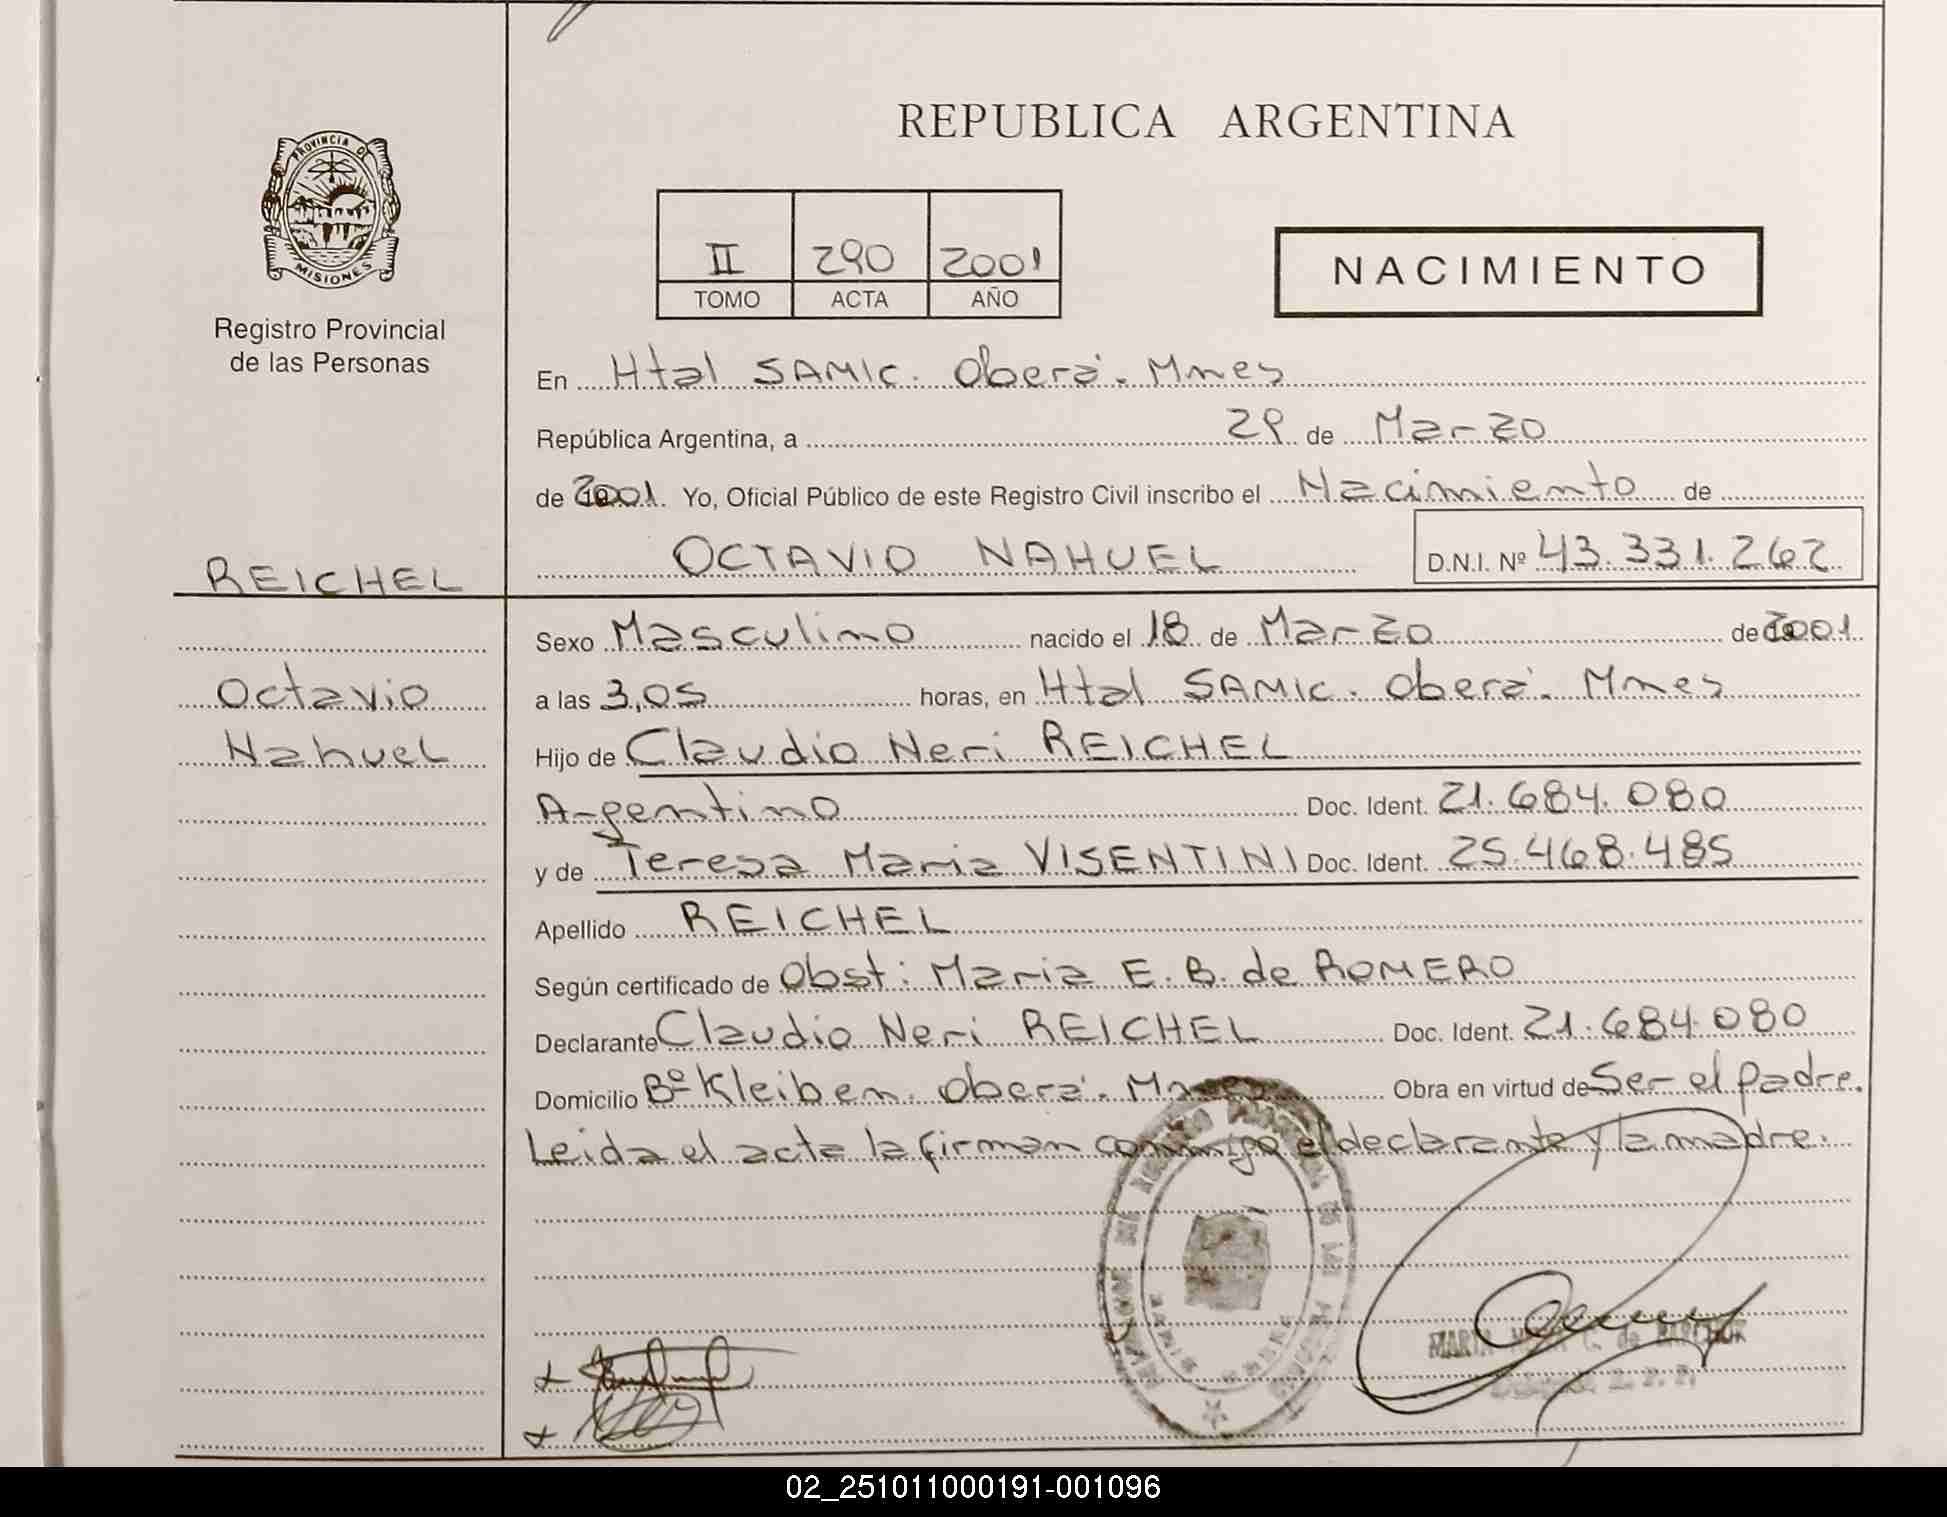 REPUBLICA ARGENTINA
PROVINCIA DE
MISIONES
Registro Provincial
de las Personas
II 290 2001
TOMO ACTA AÑO
NACIMIENTO
En Htal SAMIC. Oberá. Mnes
República Argentina, a 29 de Marzo
de 2001. Yo, Oficial Público de este Registro Civil inscribo el Nacimiento de
REICHEL
OCTAVIO NAHUEL D.N.I. Nº 43.331.262
Octavio
Nahuel
Sexo Masculino nacido el 18 de Marzo de 2001.
a las 3,05 horas, en Htal SAMIC. Oberá. Mnes
Hijo de Claudio Neri REICHEL
Argentino Doc. Ident. 21.684.080
y de Teresa Maria VISENTINI Doc. Ident. 25.468.485
Apellido REICHEL
Según certificado de Obst: Maria E. B. de ROMERO
Declarante Claudio Neri REICHEL Doc. Ident. 21.684.080
Domicilio Bº Kleiben. Oberá. Mnes Obra en virtud de Ser el padre.
Leida el acta la firman conmigo el declarante y la madre.
MARTA C. de
02_251011000191-001096